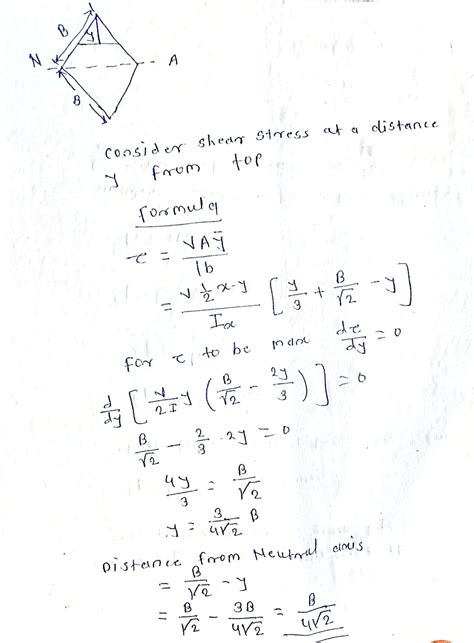 B
y
N
A
B
consider shear stress at a distance
y from top
Formula
τ = VAȳ / Ib
= V·½x·y / Ix [y/3 + B/√2 - y]
for τ, to be max dτ/dy = 0
d/dy [V/2I y (B/√2 - 2y/3)] = 0
B/√2 - 2/3 · 2y = 0
4y/3 = B/√2
y = 3/4√2 B
Distance from Neutral axis
= B/√2 - y
= B/√2 - 3B/4√2 = B/4√2